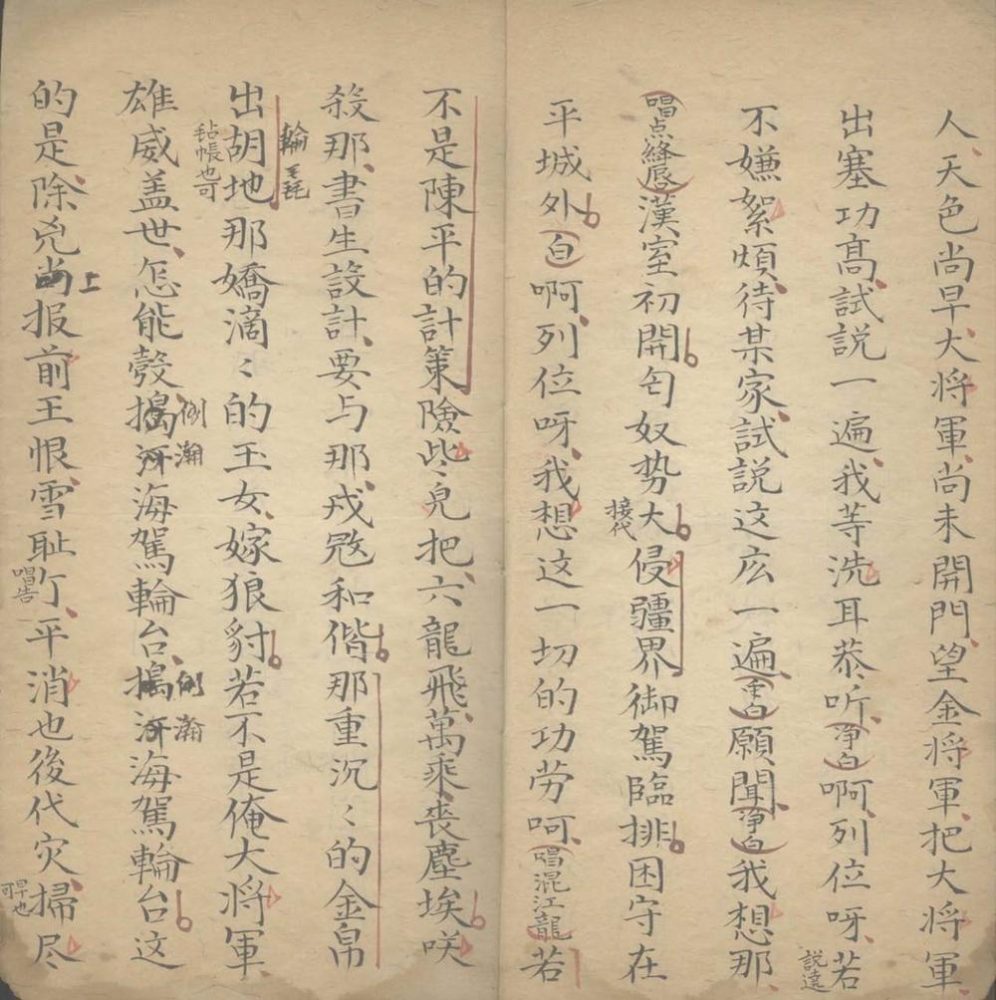 人天色尚早大将軍尚未開門望金将軍把大将軍
出塞功髙試説一遍我等洗耳恭听净白啊列位呀若
説達
不嫌絮煩待某家試説这庅一遍众白願聞净白我想那
唱点絳唇漢室初開匈奴势大侵疆界御駕臨排困守在
接代
平城外白啊列位呀我想这一切的功劳呵唱混江龍若
不是陳平的計策險些兒把六龍飛萬乘丧塵埃咲
殺那書生設計要与那戎和偕那重沉〻的金帛
輪
出胡地那嬌滴〻的玉女嫁狼豺若不是俺大将軍
毡帳也可
雄威盖世怎能彀搗海駕輪台搗海駕輪台这
倒瀚
倒瀚
的是除兇尚报前王恨雪耻平消也後代灾掃尽
上
唱告
早也可